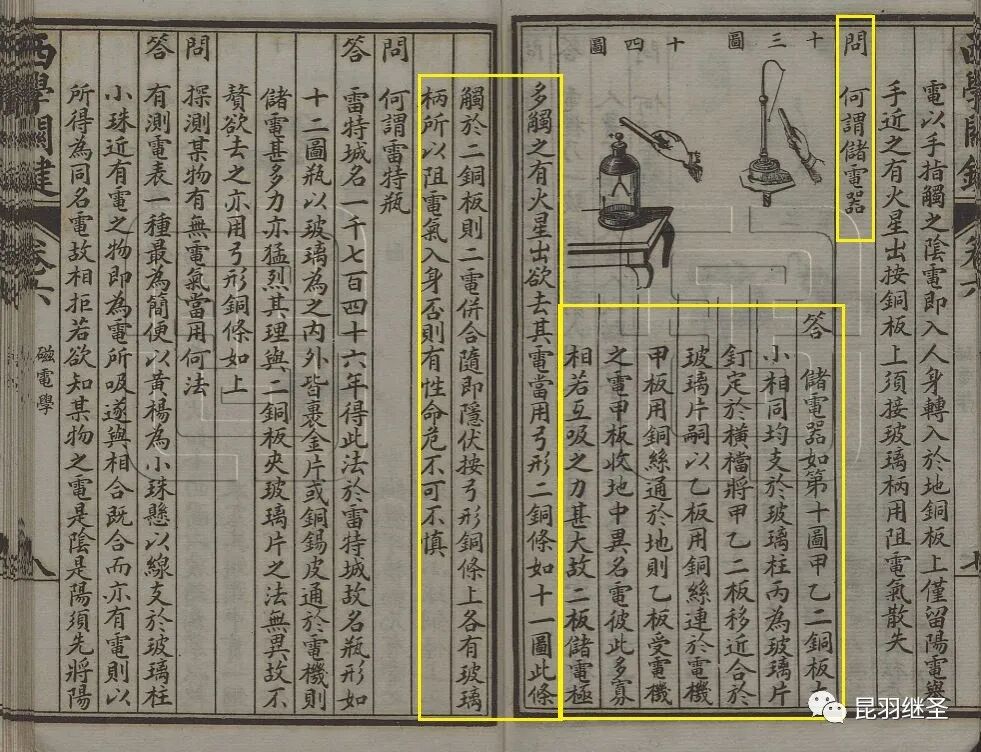 電以手指觸之陰電即入人身轉入於地銅板上僅留陽電舉
手近之有火星出按銅板上須接玻璃柄用阻電氣散失
問 何謂儲電器
十三圖
十四圖
答 儲電器如第十圖甲乙二銅板大
小相同均支於玻璃柱丙為玻璃片
釘定於橫檔將甲乙二板移近合於
玻璃片嗣以乙板用銅絲連於電機
甲板用銅絲通於地則乙板受電機
之電甲板收地中異名電彼此多寡
相若互吸之力甚大故二板儲電極
多觸之有火星出欲去其電當用弓形二銅條如十一圖此條
觸於二銅板則二電併合隨即隱伏按弓形銅條上各有玻璃
柄所以阻電氣入身否則有性命危不可不慎
問 何謂雷特瓶
答 雷特城名一千七百四十六年得此法於雷特城故名瓶形如
十二圖瓶以玻璃為之內外皆裹金片或銅錫皮通於電機則
儲電甚多力亦猛烈其理與二銅板夾玻璃片之法無異故不
贅欲去之亦用弓形銅條如上
問 探測某物有無電氣當用何法
答 有測電表一種最為簡便以黃楊為小珠懸以線支於玻璃柱
小珠近有電之物即為電所吸遂與相合既合而亦有電則以
所得為同名電故相拒若欲知某物之電是陰是陽須先將陽
西學關鍵 卷六 磁電學 八
昆羽继圣